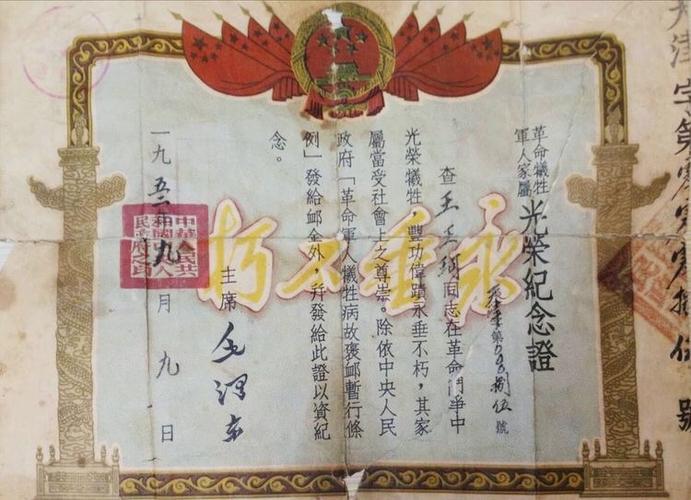 革命犧牲
軍人家屬
光榮紀念證
字第〇〇〇捌伍號
查王同志在革命鬥爭中
光榮犧牲，豐功偉蹟永垂不朽，其家
屬當受社會上之尊崇。除依中央人民
政府「革命軍人犧牲病故褒卹暫行條
例」發給卹金外，并發給此證以資紀
念。
主席 毛澤東
一九五二年九月九日
永垂不朽
中華人民共
和國中央人
民政府之印
天津字第零零零捌伍號